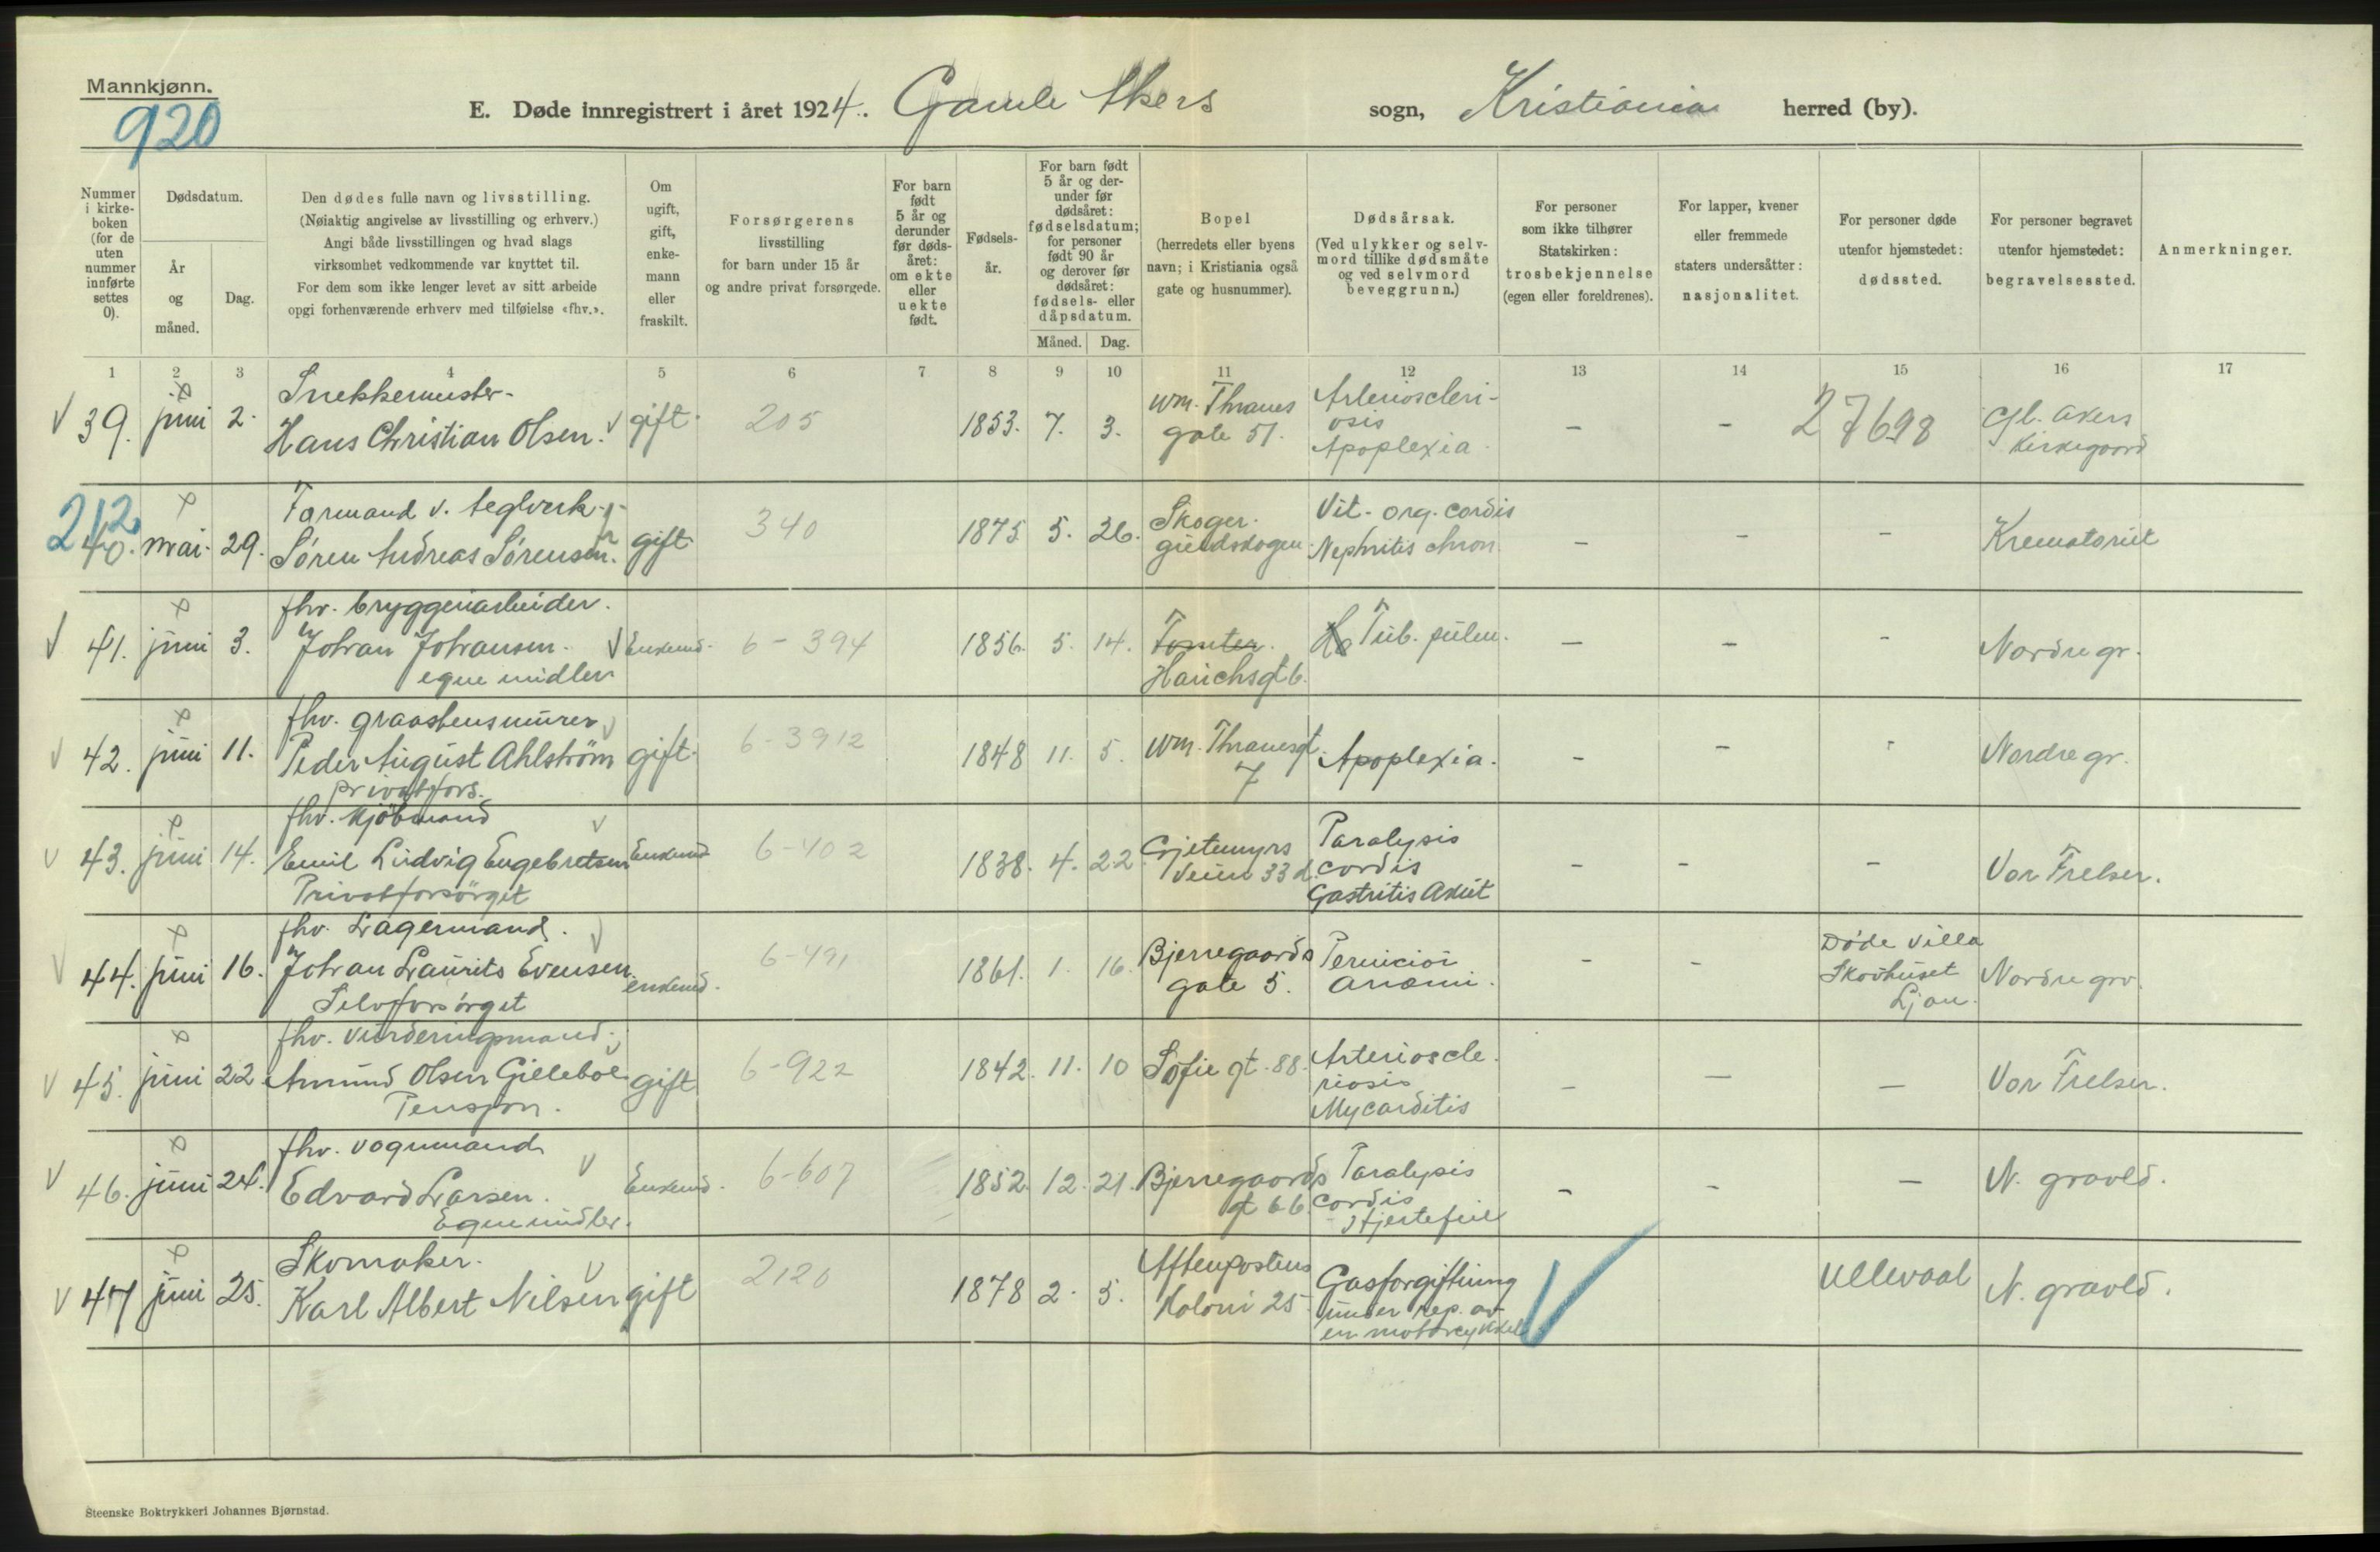 Mannkjønn.
920
E. Døde innregistrert i året 1924. Gamle Akers sogn, Kristiania herred (by).
Nummer i kirkeboken (for de uten nummer innførte settes 0).
Dødsdatum.
År og måned.
Dag.
Den dødes fulle navn og livsstilling.
(Nøiaktig angivelse av livsstilling og erhverv.)
Angi både livsstillingen og hvad slags
virksomhet vedkommende var knyttet til.
For dem som ikke lenger levet av sitt arbeide
opgi forhenværende erhverv med tilføielse «fhv.».
Om ugift, gift, enkemann eller fraskilt.
Forsørgerens
livsstilling
for barn under 15 år
og andre privat forsørgede.
For barn født 5 år og derunder før dødsåret: om ekte eller uekte født.
Fødselsår.
For barn født 5 år og derunder før dødsåret: fødselsdatum; for personer født 90 år og derover før dødsåret: fødsels- eller dåpsdatum.
Måned. Dag.
Bopel
(herredets eller byens
navn; i Kristiania også
gate og husnummer).
Dødsårsak.
(Ved ulykker og selvmord tillike dødsmåte og ved selvmord beveggrunn.)
For personer
som ikke tilhører
Statskirken:
trosbekjennelse
(egen eller foreldrenes).
For lapper, kvener
eller fremmede
staters undersåtter:
nasjonalitet.
For personer døde
utenfor hjemstedet:
dødssted.
For personer begravet
utenfor hjemstedet:
begravelsessted.
Anmerkninger.
1 2 3 4 5 6 7 8 9 10 11 12 13 14 15 16 17
Snekkermester-
39. juni 2. Hans Christian Olsen. gift. 205 1853. 7. 3. Wm. Thranes gate 51. Arterioscleriosis Apoplexia. - - 27698 Gl. Akers Kirkegaard
212
Formand v. teglverk
40. mai. 29. Søren Andreas Sørensen. gift 340 1875 5. 26. Skoger. Nephritis chron. Vit. org. cordis - - - Krematoriet
fhv. bryggeriarbeider.
41. juni 3. Johan Johansen. Enkemd. 6-394 1856. 5. 14. Tomter. Hauchsgt 6. Tub. pulm. - - - Nordre gr.
egne midler
fhv. graastensmurer
42. juni 11. Peder August Ahlström gift. 6-3912 1848 11. 5. Wm. Thranesgt. 7 Apoplexia. - - - Nordre gr.
privatfors.
fhv. kjöbmand
43. juni 14. Emil Ludvig Engebretsen Enkemd 6-402 1838. 4. 22 Gjetemyrsveien 33 d. Paralysis cordis Gastritis Akut - - - Vor Frelser.
Privatforsörget
fhv. Lagermand.
44. juni 16. Johan Laurits Evensen. enkemd. 6-491 1861. 1. 16. Bjerregaards gate 5. Perniciöi anæmi. - - Døde villa Skovhuset Ljan. Nordre grv.
Selvforsörget
fhv. vurderingsmand.
45. juni 22 Amund Olsen Gillebo gift 6-922 1842. 11. 10 Sofie gt. 88. Arteriosclereriosis Mycarditis - - - Vor Frelser.
Pensjon.
fhv. vognmand
46. juni 24. Edvard Larsen. Enkemd. 6-607 1852. 12. 21. Bjerregaards gt 66 Paralysis cordis Hjertefeil - - - N. gravld.
Egne midler.
Skomaker.
47 juni 25. Karl Albert Nilsen gift 2120 1878 2. 5. Aftenpostens Koloni 25 Gasforgiftning under rep. av en motorcykkel Ullevaal N. gravld.
Steenske Boktrykkeri Johannes Bjørnstad.